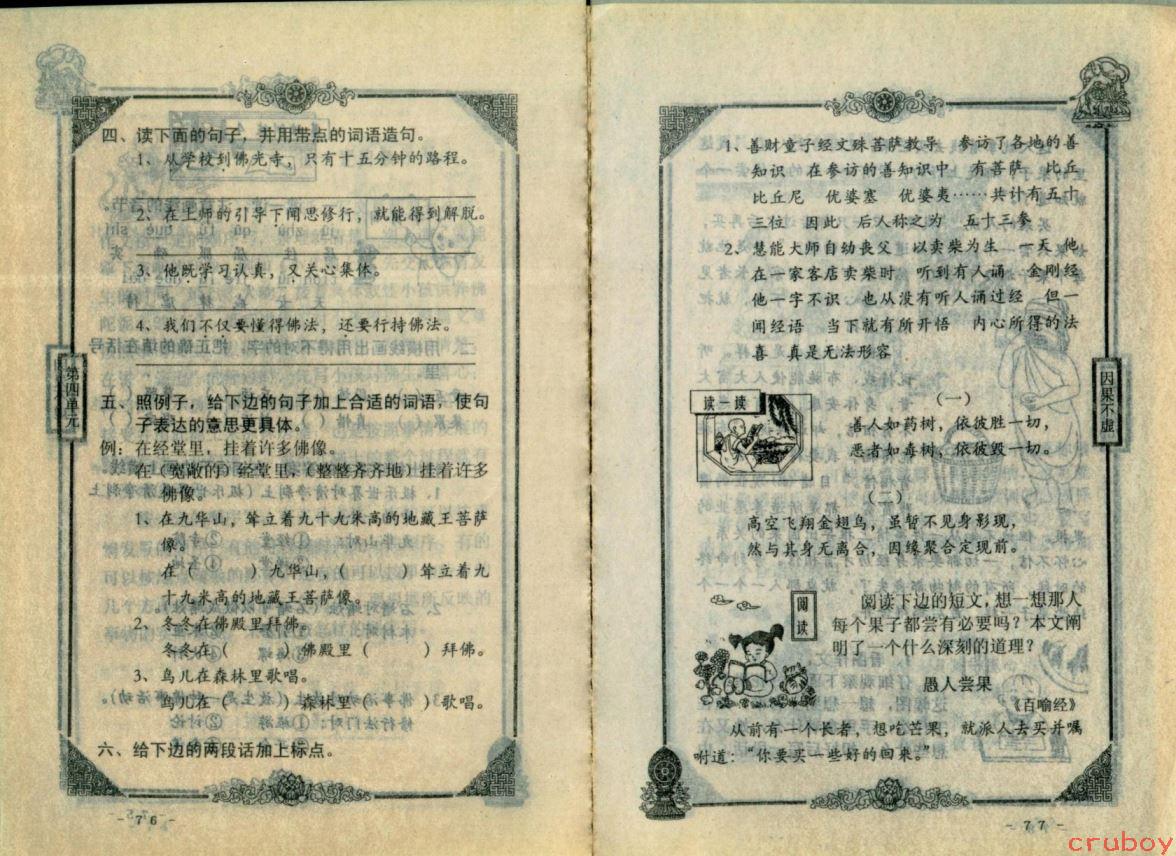 四、读下面的句子，并用带点的词语造句。
1、从学校到佛光寺，只有十五分钟的路程。
2、在上师的引导下闻思修行，就能得到解脱。
3、他既学习认真，又关心集体。
4、我们不仅要懂得佛法，还要行持佛法。
五、照例子，给下边的句子加上合适的词语，使句
子表达的意思更具体。
例：在经堂里，挂着许多佛像。
在（宽敞的）经堂里，（整整齐齐地）挂着许多
佛像。
1、在九华山，耸立着九十九米高的地藏王菩萨
像。
在（ ）九华山，（ ）耸立着九
十九米高的地藏王菩萨像。
2、冬冬在佛殿里拜佛。
冬冬在（ ）佛殿里（ ）拜佛。
3、鸟儿在森林里歌唱。
鸟儿在（ ）森林里（ ）歌唱。
六、给下边的两段话加上标点。
第四单元
-76-
1、善财童子经文殊菩萨教导 参访了各地的善
知识 在参访的善知识中 有菩萨 比丘
比丘尼 优婆塞 优婆夷……共计有五十
三位 因此 后人称之为 五十三参
2、慧能大师自幼丧父 以卖柴为生 一天 他
在一家客店卖柴时 听到有人诵 金刚经
他一字不识 也从没有听人诵过经 但一
闻经语 当下就有所开悟 内心所得的法
喜 真是无法形容
读一读
（一）
善人如药树，依彼胜一切，
恶者如毒树，依彼毁一切。
（二）
高空飞翔金翅鸟，虽暂不见身影现，
然与其身无离合，因缘聚合定现前。
阅读
阅读下边的短文，想一想那人
每个果子都尝有必要吗？本文阐
明了一个什么深刻的道理？
愚人尝果
《百喻经》
从前有一个长者，想吃芒果，就派人去买并嘱
咐道：“你要买一些好的回来。”
因果不虚
-77-
cruboy